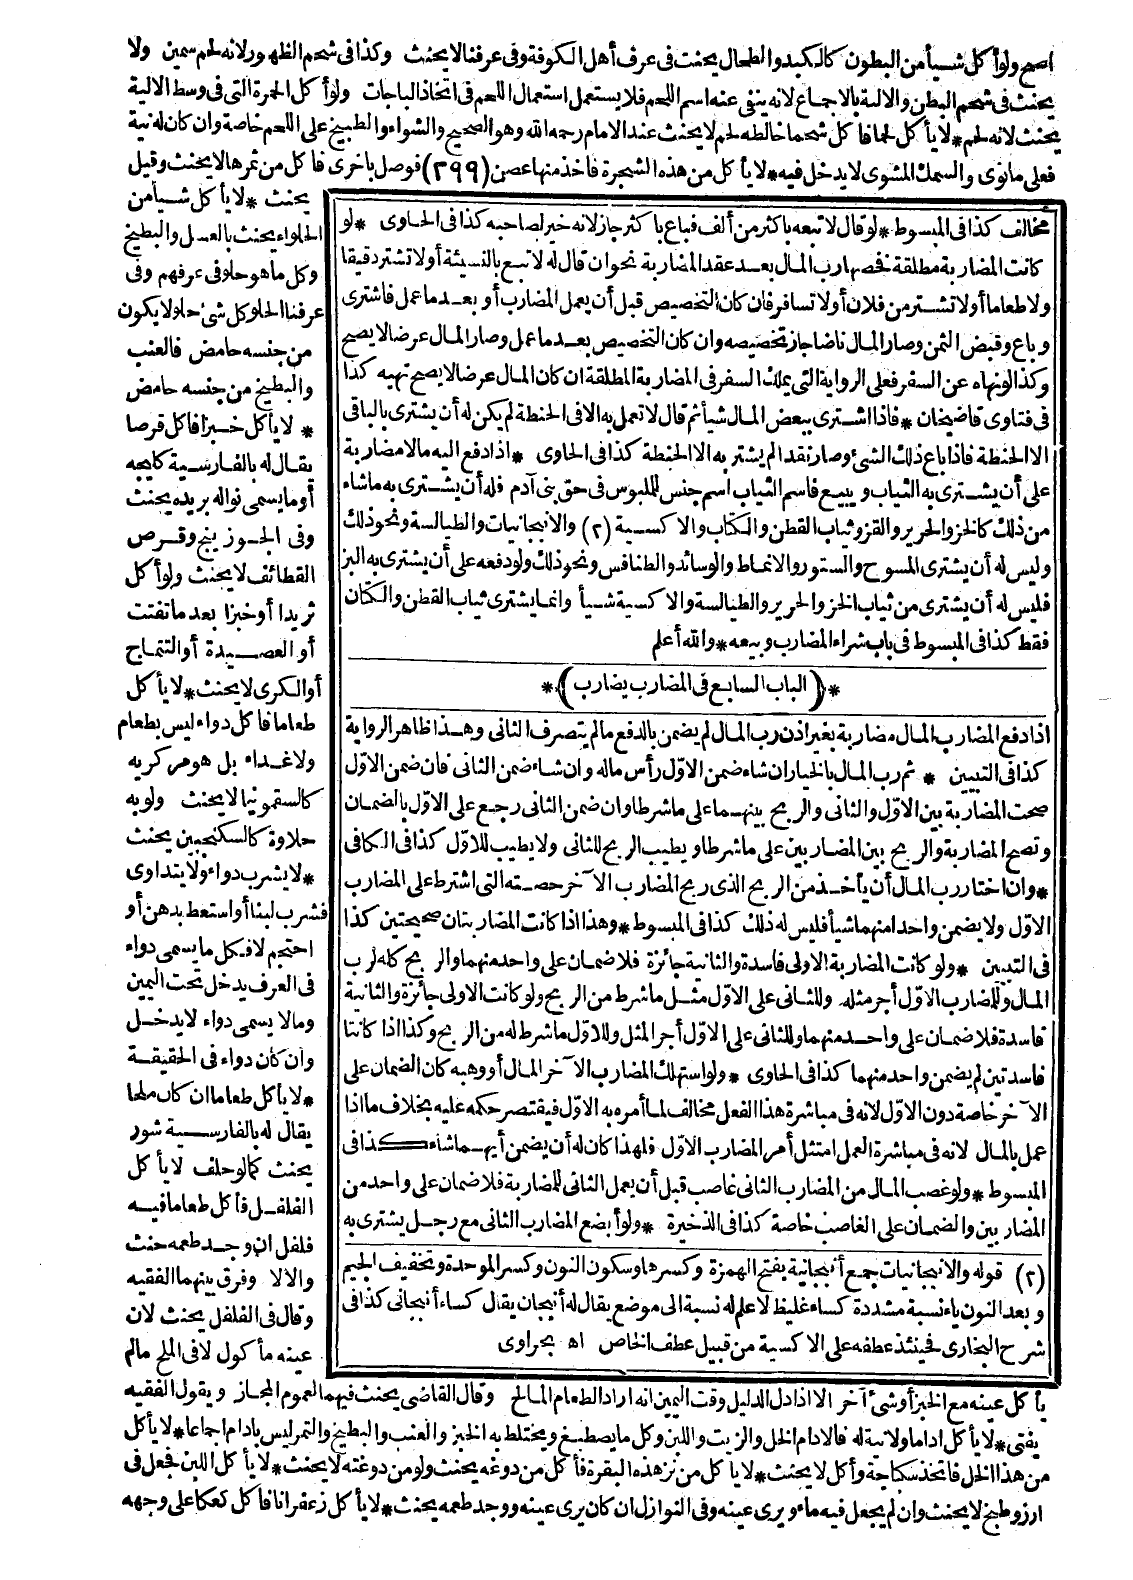 اصح ولو أكل شيأ من البطون كالكبد والطحال يحنث فى عرف أهل الكوفة وفى عرفنا لا يحنث وكذا فى شحم الظهور لانه لحم سمين ولا
يحنث فى شحم البطن والالية بالاجماع لانه ينفى عنه اسم اللحم فلا يستعمل استعمال اللحم فى اتخاذ الباجات ولو أكل الحمرة التى فى وسط الالية
يحنث لانه لحم * لا يأكل لحما فأكل شحما خالطه لحم لا يحنث عند الامام رحمه الله وهو الصحيح والشواء والطبيخ على اللحم خاصة وان كان له نية
فعلى مانوى والسمك المشوى لا يدخل فيه * لا يأكل من هذه الشجرة فاخذ منها غصن (٢٩٩) فوصل باخرى فأكل من ثمرها لا يحنث وقيل
يحنث * لا يأكل شيأ من
الحلواء يحنث بالعسل والبطيخ
وكل ما هو حلو فى عرفهم وفى
عرفنا الحلو كل شئ حلو لا يكون
من جنسه حامض فالعنب
والبطيخ من جنسه حامض
* لا يأكل خبزا فأكل قرصا
يقال له بالفارسية كايجه
أو ما يسمى نواله بريده يحنث
وفى الجوزينج وقرص
القطائف لا يحنث ولو أكل
ثريدا أو خبزا بعد ما تفتت
أو العصيدة أو التتماج
أو الكرى لا يحنث * لا يأكل
طعاما فأكل دواء ليس بطعام
ولا غداء بل هو مر كريه
كالسقمونيا لا يحنث ولو به
حلاوة كالسكنجبين يحنث
* لا يشرب دواء ولا يتداوى
فشرب لبنا أو استعط بدهن أو
احتجم لا فكل ما يسمى دواء
فى العرف يدخل تحت اليمين
وما لا يسمى دواء لا يدخل
وان كان دواء فى الحقيقة
* لا يأكل طعاما ان كان ملحا
يقال له بالفارسية شور
يحنث كما لو حلف لا يأكل
الفلفل فأكل طعاما فيه
فلفل ان وجد طعمه حنث
والا لا وفرق بينهما الفقيه
وقال فى الفلفل يحنث لان
عينه مأكول لا فى الملح مالم
مخالف كذا فى المبسوط * لو قال لا تبعه باكثر من ألف فباع باكثر جاز لانه خير لصاحبه كذا فى الحاوى * لو
كانت المضاربة مطلقة فخصها رب المال بعد عقد المضاربة نحو ان قال له لا تبع بالنسيئة أو لا تشتر دقيقا
ولا طعاما أو لا تشتر من فلان أو لا تسافر فان كان التخصيص قبل أن يعمل المضارب أو بعد ما عمل فاشترى
وباع وقبض الثمن وصار المال ناضا جاز تخصيصه وان كان التخصيص بعد ما عمل وصار المال عرضا لا يصح
وكذا لو نهاه عن السفر فعلى الرواية التى يملك السفر فى المضاربة المطلقة ان كان المال عرضا لا يصح نهيه كذا
فى فتاوى قاضيخان * فاذا اشترى ببعض المال شيأ ثم قال لا تعمل به الا فى الحنطة لم يكن له أن يشترى بالباقى
الا الحنطة فاذا باع ذلك الشئ وصار نقدا لم يشتر به الا الحنطة كذا فى الحاوى * اذا دفع اليه مالا مضاربة
على أن يشترى به الثياب ويبيع فاسم الثياب اسم جنس للملبوس فى حق بنى آدم فله أن يشترى به ماشاء
من ذلك كالخز والحرير والقز وثياب القطن والكتاب والاكسية (٢) والانبجانيات والطيالسة ونحو ذلك
وليس له أن يشترى المسوح والستور والانماط والوسائد والطنافس ونحو ذلك ولو دفعه على أن يشترى به البز
فليس له أن يشترى من ثياب الخز والحرير والطيالسة والاكسية شيأ وانما يشترى ثياب القطن والكتان
فقط كذا فى المبسوط فى باب شراء المضارب وبيعه * والله أعلم
* (الباب السابع فى المضارب يضارب) *
اذا دفع المضارب المال مضاربة بغير اذن رب المال لم يضمن بالدفع مالم يتصرف الثانى وهذا ظاهر الرواية
كذا فى التبيين * ثم رب المال بالخيار ان شاء ضمن الاوّل رأس ماله وان شاء ضمن الثانى فان ضمن الاوّل
صحت المضاربة بين الاوّل والثانى والربح بينهما على ما شرطا وان ضمن الثانى رجع على الاوّل بالضمان
وتصح المضاربة والربح بين المضاربين على ما شرطا ويطيب الربح للثانى ولا يطيب للاوّل كذا فى الكافى
* وان اختار رب المال أن يأخذ من الربح الذى ربح المضارب الآخر حصته التى اشترط على المضارب
الاوّل ولا يضمن واحدا منهما شيأ فليس له ذلك كذا فى المبسوط * وهذا اذا كانت المضاربتان صحيحتين كذا
فى التبيين * ولو كانت المضاربة الاولى فاسدة والثانية جائزة فلا ضمان على واحد منهما والربح كله لرب
المال وللمضارب الاوّل أجر مثله وللثانى على الاوّل مثل ما شرط من الربح ولو كانت الاولى جائزة والثانية
فاسدة فلا ضمان على واحد منهما وللثانى على الاوّل أجر المثل وللاوّل ما شرط له من الربح وكذا اذا كانتا
فاسدتين لم يضمن واحد منهما كذا فى الحاوى * ولو استهلك المضارب الآخر المال أو وهبه كان الضمان على
الآخر خاصة دون الاوّل لانه فى مباشرة هذا الفعل مخالف لما أمره به الاوّل فيقتصر حكمه عليه بخلاف ما اذا
عمل بالمال لانه فى مباشرة العمل امتثل أمر المضارب الاوّل فلهذا كان له أن يضمن أيهما شاء كذا فى
المبسوط * ولو غصب المال من المضارب الثانى غاصب قبل أن يعمل الثانى للمضاربة فلا ضمان على واحد من
المضاربين والضمان على الغاصب خاصة كذا فى الذخيرة * ولو أبضع المضارب الثانى مع رجل يشترى به
(٢) قوله والانبجانيات جمع أنبجانية بفتح الهمزة وكسرها وسكون النون وكسر الموحدة وتخفيف الجيم
وبعد النون ياء نسبة مشددة كساء غليظ لا علم له نسبة الى موضع يقال له أنبجان يقال كساء أنبجانى كذا فى
شرح البخارى فحينئذ عطفه على الاكسية من قبيل عطف الخاص اه بحراوى
يأكل عينه مع الخبز أو شئ آخر الا اذا دل الدليل وقت اليمين انه اراد الطعام المالح وقال القاضى يحنث فيهما لعموم المجاز وبقول الفقيه
يفتى * لا يأكل اداما ولا نية له فالادام الخل والزيت واللبن وكل ما يصطبغ ويختلط به الخبز والعنب والبطيخ والتمر ليس بادام اجماعا * لا يأكل
من هذا الخل فاتخذ سكباجة وأكل لا يحنث * لا يأكل من نزهذه البقرة فأكل من دوغه يحنث ولو من دوغته لا يحنث * لا يأكل اللبن فجعل فى
ارزو طبخ لا يحنث وان لم يجعل فيه ماء ويرى عينه وفى النوازل ان كان يرى عينه ووجد طعمه يحنث * لا يأكل زعفرانا فأكل كعكا على وجهه